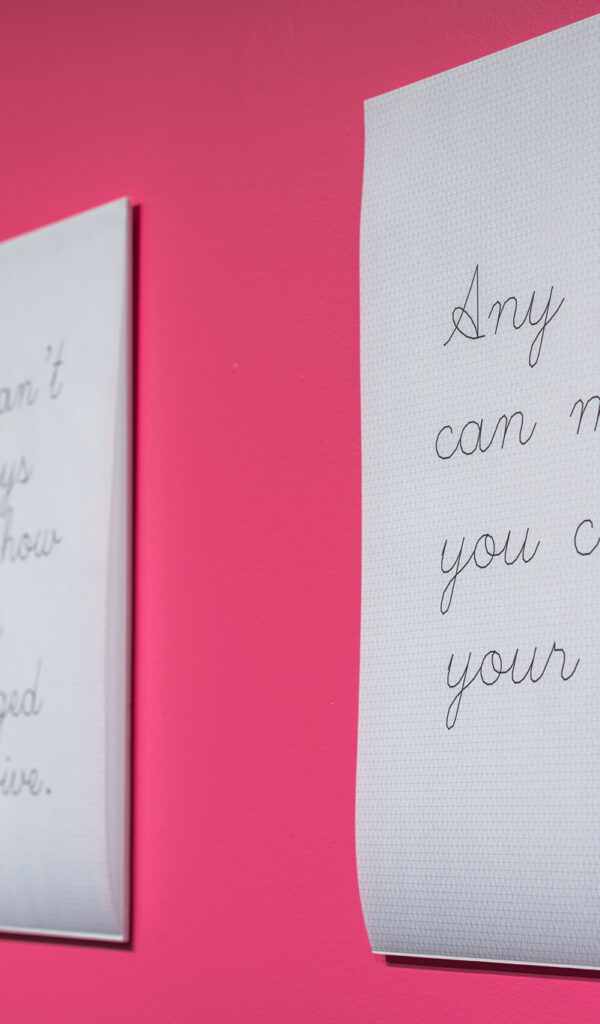 an't
ys
how
ged
ive.
Any
can
you c
your